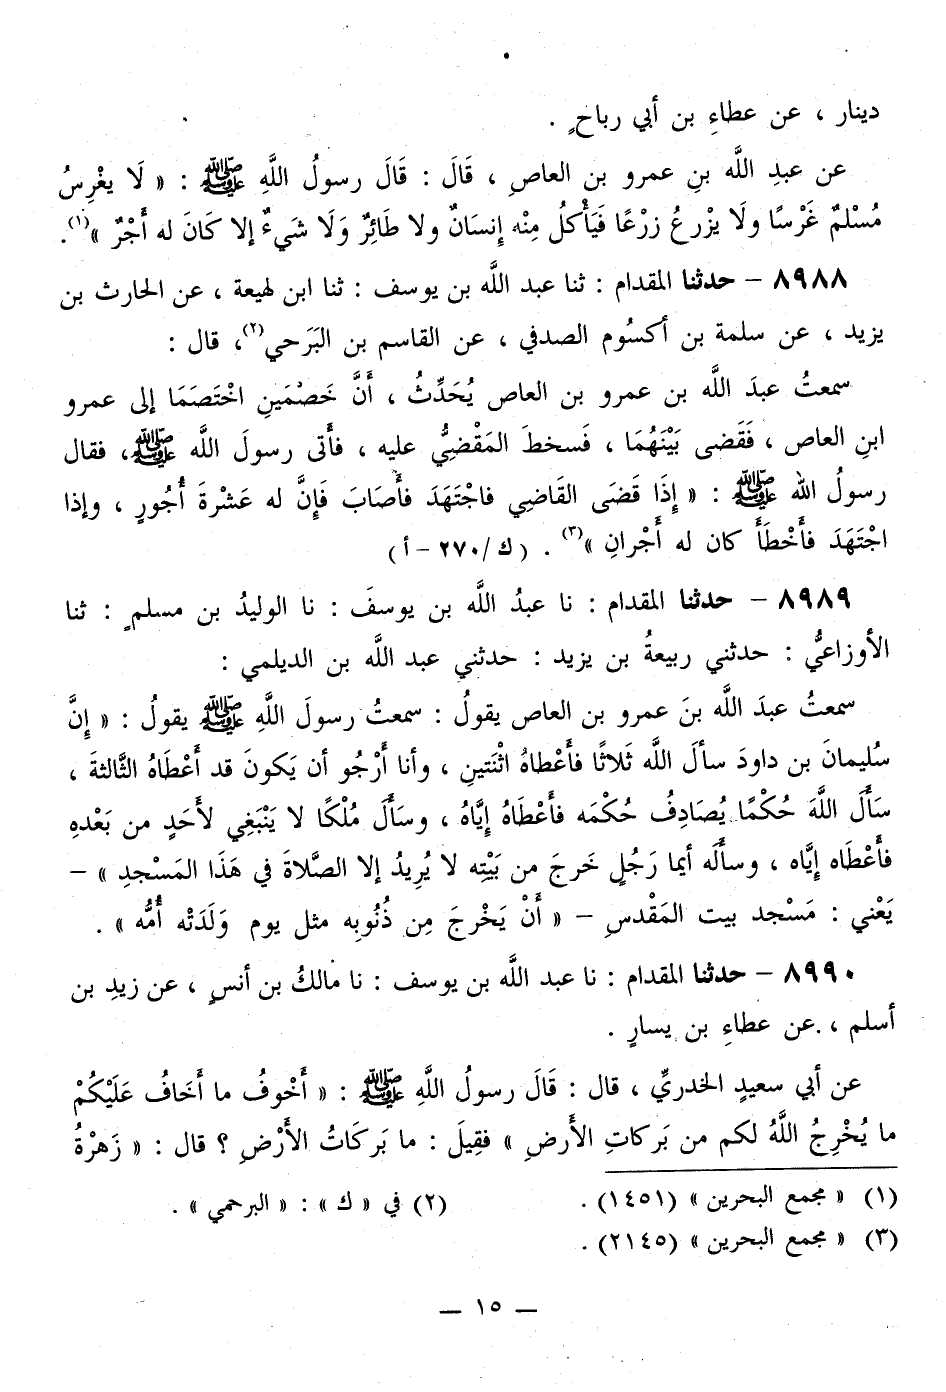 دينار ، عن عطاءِ بن أبي رباحٍ .
عن عبدِ اللَّه بنِ عمرو بن العاصِ ، قَالَ : قَالَ رسولُ اللَّهِ ﷺ : « لَا يغْرِسُ
مُسْلمٌ غَرْسًا ولَا يزْرعُ زرْعًا فَيَأْكلُ مِنْه إنسَانٌ ولا طَائِرٌ وَلَا شَيءٌ إلا كانَ له أَجْرٌ »(١).
٨٩٨٨ – حدثنا المقدام : ثنا عبد اللَّه بن يوسف : ثنا ابن لهيعة ، عن الحارث بن
يزيد ، عن سلمة بن أكسُوم الصدفي ، عن القاسم بن البَرَحي(٢)، قال :
سمعتُ عبدَ اللَّه بن عمرو بن العاص يُحَدِّثُ ، أَنَّ خَصْمَينِ اخْتَصَمَا إلى عمرو
ابنِ العاص ، فَقَضى بَيْنَهُمَا ، فَسخطَ المَقْضِيُّ عليه ، فأَتى رسولَ اللَّه ﷺ، فقال
رسولُ الله ﷺ : « إِذَا قَضَى القَاضِي فاجْتَهَدَ فأَصَابَ فَإِنَّ له عَشْرةَ أُجُورٍ ، وإذا
اجْتَهَدَ فأَخْطَأَ كان له أَجْرانِ »(٣) . (ك/٢٧٠ – أ)
٨٩٨٩ – حدثنا المقدام : نا عبدُ اللَّه بن يوسفَ : نا الوليدُ بن مسلمٍ : ثنا
الأوزاعيُّ : حدثني ربيعةُ بن يزيد : حدثني عبد اللَّه بن الديلمي :
سمعتُ عبدَ اللَّه بنَ عمرو بن العاص يقولُ : سمعتُ رسولَ اللَّهِ ﷺ يقولُ : « إِنَّ
سُليمانَ بن داودَ سألَ اللَّه ثَلاثًا فأَعْطاهُ اثْنَتينِ ، وأنا أَرْجُو أن يَكونَ قد أَعْطَاهُ الثَّالثةَ ،
سَأَلَ اللَّهَ حُكْمًا يُصَادِفُ حُكْمَه فأَعْطَاهُ إِيَّاهُ ، وسَأَلَ مُلْكًا لا يَنْبَغِي لأَحَدٍ من بَعْدهِ
فأَعْطَاه إِيَّاه ، وسأَلَه أيما رَجُلٍ خَرجَ من بَيْتِه لا يُرِيدُ إلا الصَّلاةَ في هَذَا المَسْجدِ » –
يَعْني : مَسْجد بيت المَقْدسِ – « أَنْ يَخْرجَ مِن ذُنُوبِه مثل يوم وَلَدَتْه أُمُّه » .
٨٩٩٠ – حدثنا المقدام : نا عبد اللَّه بن يوسف : نا مالكُ بن أنسٍ ، عن زيدِ بن
أسلم ، عن عطاءِ بن يسارٍ .
عن أبي سعيدٍ الخدريِّ ، قال : قَالَ رسولُ اللَّهِ ﷺ : « أَخْوفُ ما أَخَافُ عَلَيْكُمْ
ما يُخْرِجُ اللَّهُ لكم من بَركاتِ الأَرضِ » فقِيلَ : ما بَركَاتُ الأَرْضِ ؟ قال : « زَهرْةُ
(١) « مجمع البحرين » (١٤٥١) . (٢) في « ك » : « البرحمي » .
(٣) « مجمع البحرين » (٢١٤٥) .
— ١٥ —